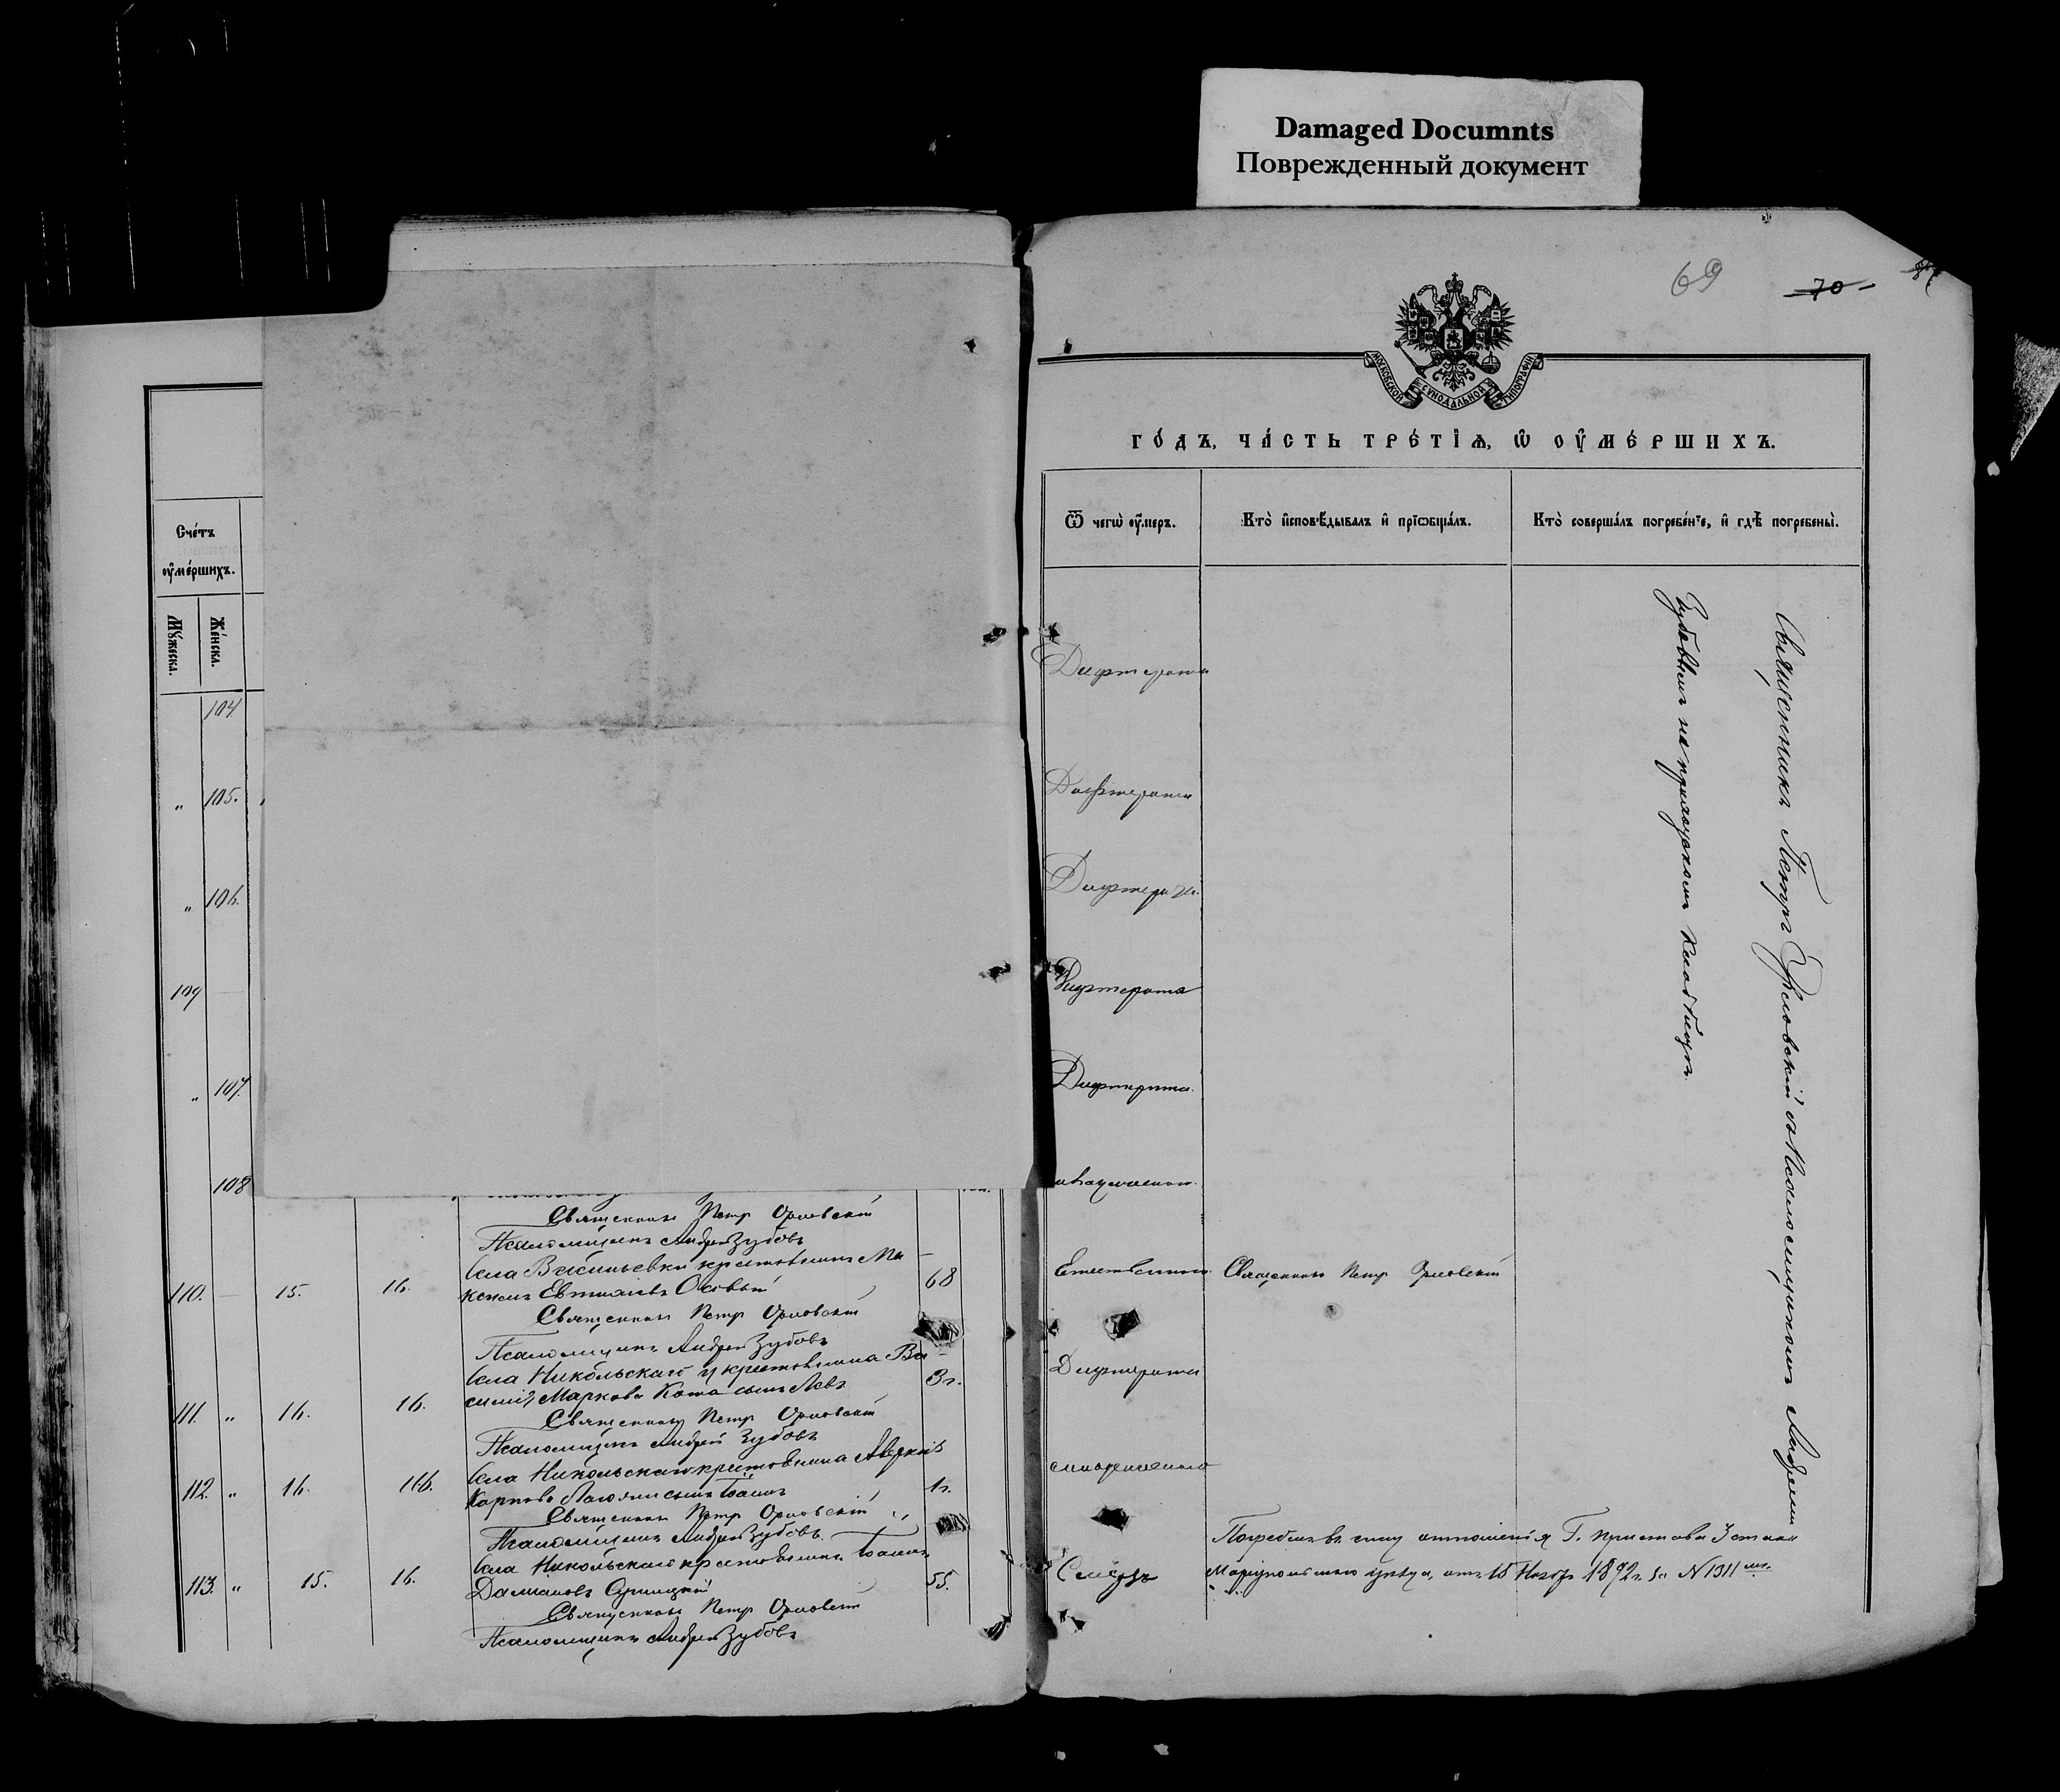 Damaged Documnts
Поврежденный документ
69
70
МОСКОВСКОЙ СѴНОДАЛЬНОЙ ТИПОГРАФІИ
Счетъ
оумершихъ.
Мужеска.
Женска.
104
„ 105.
„ 106.
109
„ 107.
108
Священникъ Петръ Орловскій
Псаломщикъ Андрей Зубовъ
110. 15. 16.
Села крестьянинъ Ма
ксимъ 68
Священникъ Петръ Орловскій
Псаломщикъ Андрей Зубовъ
Села Никольскаго крестьянина Ва
111. „ 16. 16.
силія Маркова Кота сынъ Левъ 3 г.
Священникъ Петръ Орловскій
Псаломщикъ Андрей Зубовъ
Села Никольскаго крестьянина
112. „ 16. 16.
Карпова сынъ Іоаннъ 1 г.
Священникъ Петръ Орловскій
Псаломщикъ Андрей Зубовъ.
Села Никольскаго крестьянинъ Іоаннъ
113. „ 15. 16.
Даміановъ 55.
Священникъ Петръ Орловскій
Псаломщикъ Андрей Зубовъ
годъ, часть третїѧ, ѡ оумершихъ.
Ѿ чегѡ оумеръ.
Кто исповѣдывалъ и прїѡбщалъ.
Кто совершалъ погребенїе, и гдѣ погребены.
Дифтерита
Дифтерита
Дифтерита.
Дифтерита
Дифтерита.
Священникъ Петръ Орловскій
Дифтерита
Погребенъ въ силу отношенія Г. Пристава 3 стана
Маріупольскаго уѣзда, отъ 15 Ноября 1892 г. за № 1311
Священникъ Петръ Орловскій съ Псаломщикомъ Андреемъ
Зубовымъ на приходскомъ кладбищѣ.